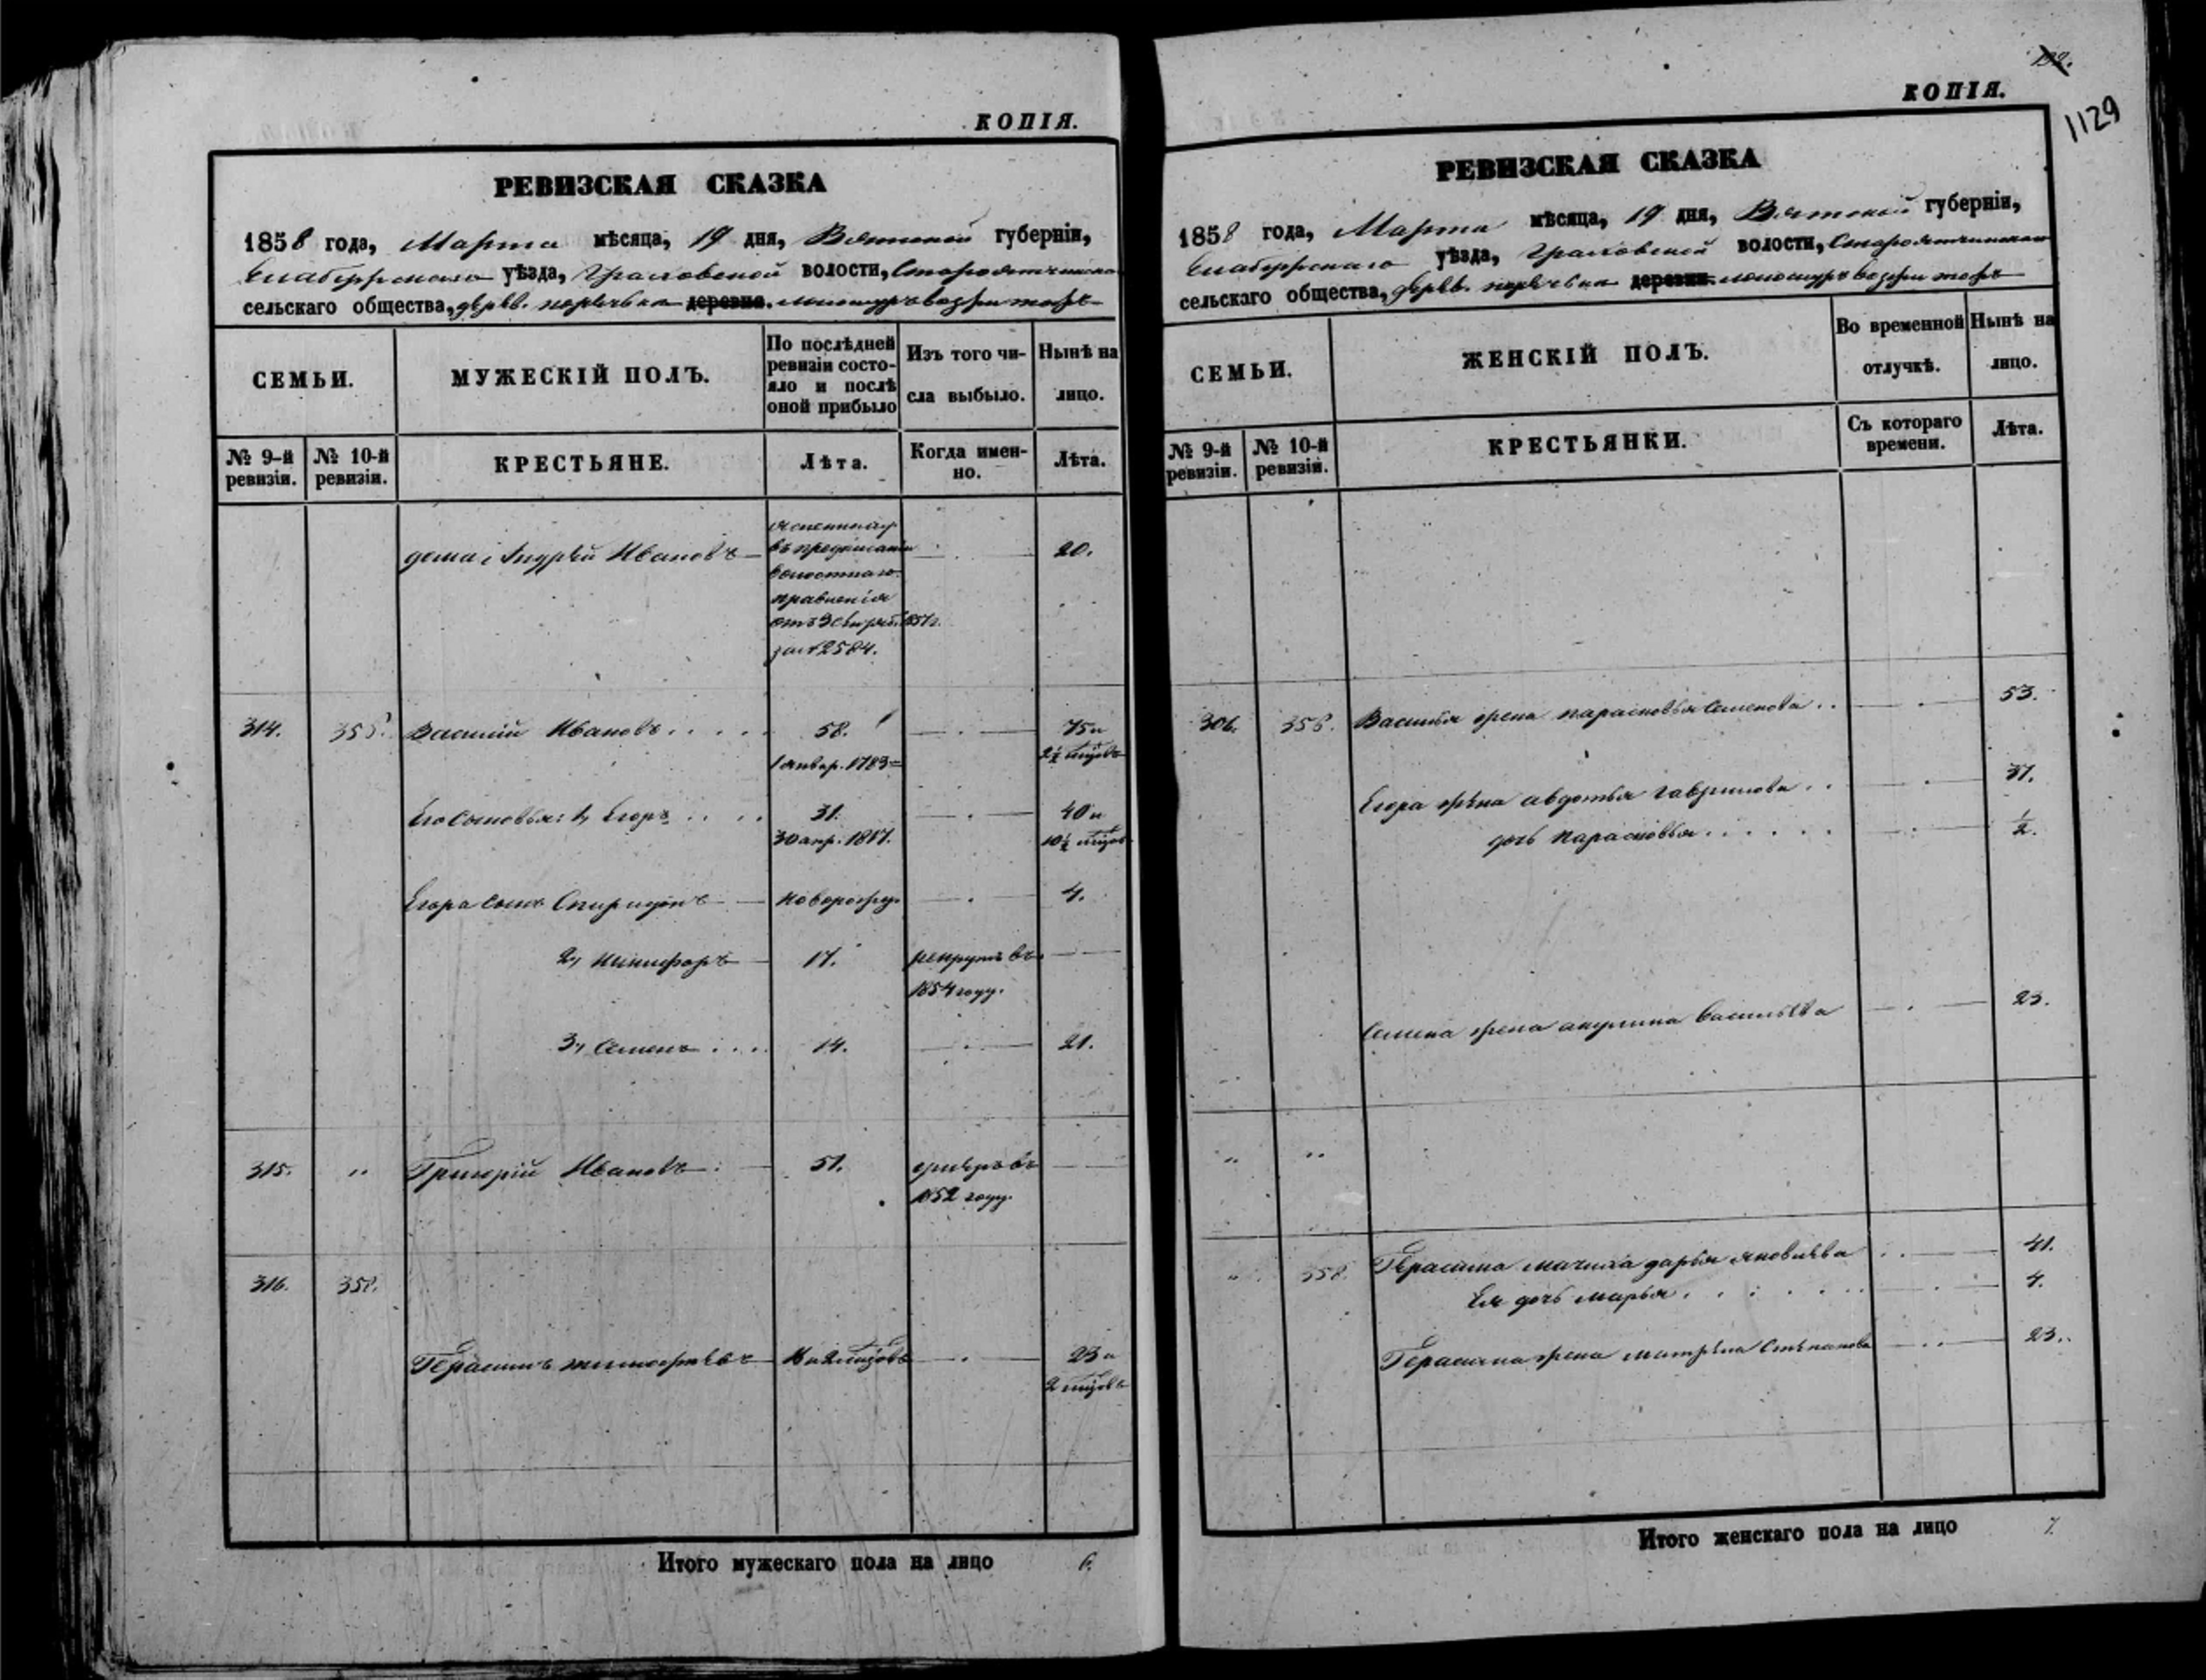 КОПІЯ.
РЕВИЗСКАЯ СКАЗКА
1858 года, Марта мѣсяца, 19 дня, Вятской губерніи,
Елабужскаго уѣзда, Граховской волости,
сельскаго общества, дерев. деревня.
СЕМЬИ.
МУЖЕСКІЙ ПОЛЪ.
По послѣдней ревизіи состояло и послѣ оной прибыло
Изъ того числа выбыло.
Нынѣ на лицо.
№ 9-й ревизіи.
№ 10-й ревизіи.
КРЕСТЬЯНЕ.
Лѣта.
Когда именно.
Лѣта.
дома Андрей Ивановъ 20.
въ предписаніи
волостнаго
правленія
за № 2584.
314. 355. Василій Ивановъ 58. 75 и
1 январ. 1783 2½ мѣсяцовъ
Его сыновья: 1, Егоръ 31. 40 и
30 апр. 1817. 10½ мѣсяцов
Егора сынъ Спиридонъ новорожд. 4.
2, Никифоръ 17. рекрутъ въ
1854 году.
3, Семенъ 14. 21.
315. " Григорій Ивановъ 51. умеръ въ
1852 году.
316. 358.
Герасимъ Тимофѣевъ 23 и
2 мѣсяцовъ
Итого мужескаго пола на лицо 6.
192.
КОПІЯ.
1129
РЕВИЗСКАЯ СКАЗКА
1858 года, Марта мѣсяца, 19 дня, Вятской губерніи,
Елабужскаго уѣзда, Граховской волости,
сельскаго общества, дерев. деревни.
СЕМЬИ.
ЖЕНСКІЙ ПОЛЪ.
Во временной отлучкѣ.
Нынѣ на лицо.
№ 9-й ревизіи.
№ 10-й ревизіи.
КРЕСТЬЯНКИ.
Съ котораго времени.
Лѣта.
306. 356. Василья жена Парасковья Семенова 53.
Егора жена Авдотья Гаврилова 37.
дочь Парасковья ½.
Семена жена Акулина Васильева 23.
" "
" 358. Герасима мачиха Дарья Яковлева 41.
Ея дочь Марья 4.
Герасима жена Матрена Степанова 23.
Итого женскаго пола на лицо 7.